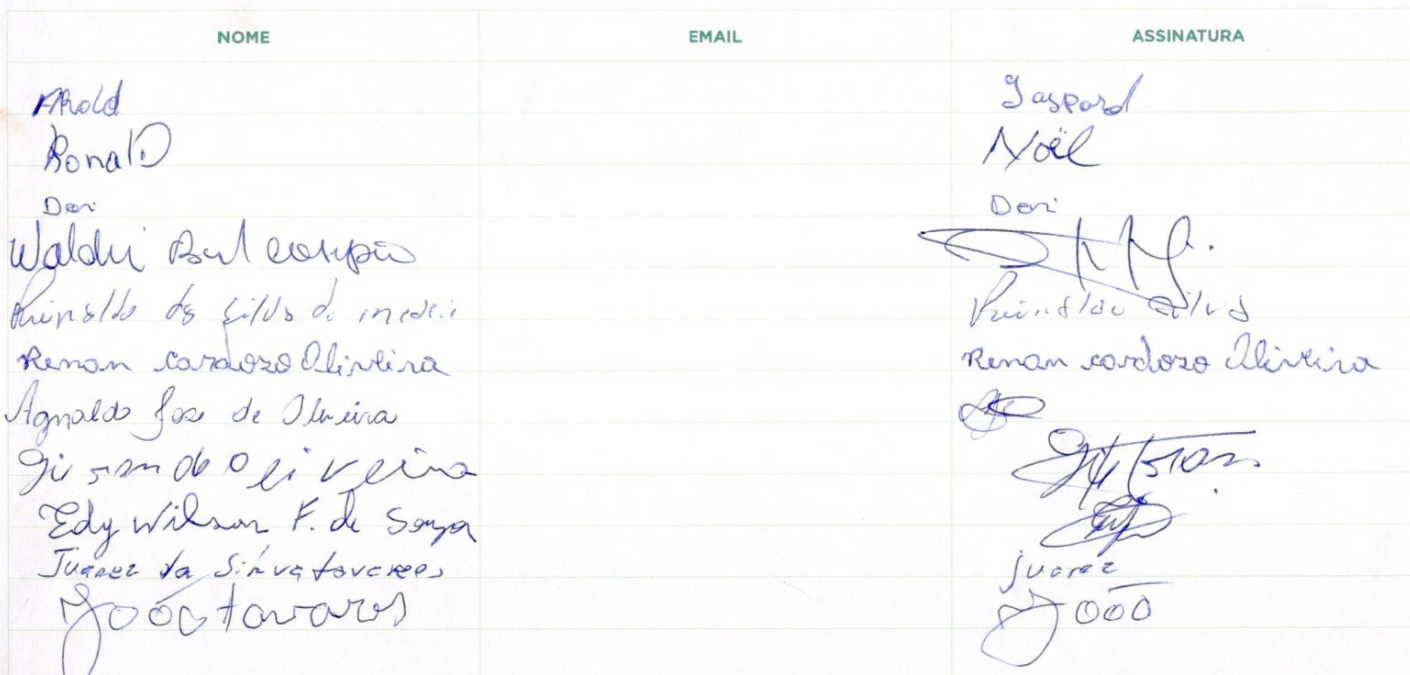 NOME EMAIL ASSINATURA
Arold Gaspard
Ronald Noël
Deri Deri
Waldir
da Silva de Silva
Renan cardozo Oliveira Renan cardozo Oliveira
Agnaldo Jose de Oliveira
de Oliveira
Edy Wilson F. de Souza
Juarez da Silva tavares juarez
João tavares João